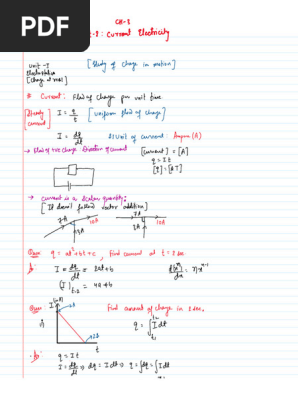 PDF
CH-3
-2: Current Electricity
Unit-I
Electrostatics
[charge at rest]
[Study of charge in motion]
* Current: Flow of charge per unit time.
[Steady current]
I = q/t [uniform flow of charge]
I = dq/dt
SI unit of current: Ampere (A)
→ Flow of +ve charge direction of current
[current] = [A]
q = It
[q] = [AT]
→ Current is a scalar quantity:
[It doesn't follow vector addition]
7A
10A
3A
7A
10A
3A
Ques: q = at² + bt + c, find current at t = 2 sec
I = dq/dt = 2at + b
d(xⁿ)/dx = nxⁿ⁻¹
(I)t=2 = 4a + b
Ques:
I(A)
2A
2s
t
Find amount of charge in 2 sec.
q = ∫ I dt
q = It
I = dq/dt ⇒ dq = I dt ⇒ q = ∫dq = ∫I dt